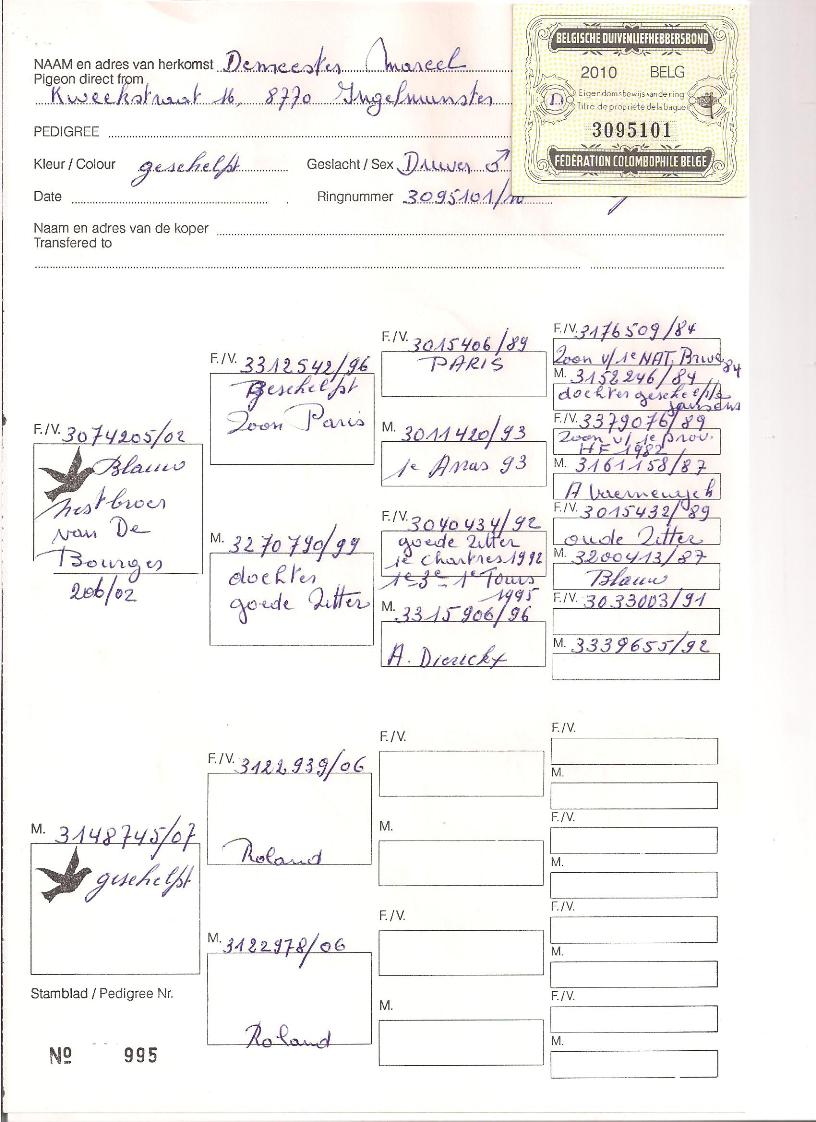 NAAM en adres van herkomst Demeester Marcel
Pigeon direct from
Kweekstraat 16, 8770 Ingelmunster
PEDIGREE
Kleur / Colour geschelpt Geslacht / Sex Duiver ♂
Date Ringnummer 3095101/10
Naam en adres van de koper
Transfered to
BELGISCHE DUIVENLIEFHEBBERSBOND
2010 BELG
Eigendomsbewijs van de ring
Titre de propriété de la bague
3095101
FÉDÉRATION COLOMBOPHILE BELGE
F./V. 3074205/02
Blauw
nestbroer
van De
Bourges
206/02
F./V. 3312542/96
Geschelpt
Zoon Paris
M. 3270790/99
dochter
goede Zitter
F./V. 3015406/89
PARIS
M. 3011420/93
1e Arras 93
F./V. 3040434/92
goede Zitter
1e Chartres 1992
1e 3e - 1e Tours
1995
M. 3315906/96
A. Dierickx
F./V. 3176509/84
Zoon v/ 1e NAT. Brive 84
M. 3152246/84
dochter geschelpte
Jansens
F./V. 3379076/89
Zoon v/ 1e prov.
HF 1982
M. 3161158/87
A Vaernewyck
F./V. 3015432/89
oude Zitter
M. 3200413/87
Blauw
F./V. 3033003/91
M. 3339655/92
M. 3148745/07
geschelpt
F./V. 3122939/06
Roland
M. 3122978/06
Roland
F./V.
M.
F./V.
M.
F./V.
M.
F./V.
M.
F./V.
M.
F./V.
M.
Stamblad / Pedigree Nr.
Nº 995